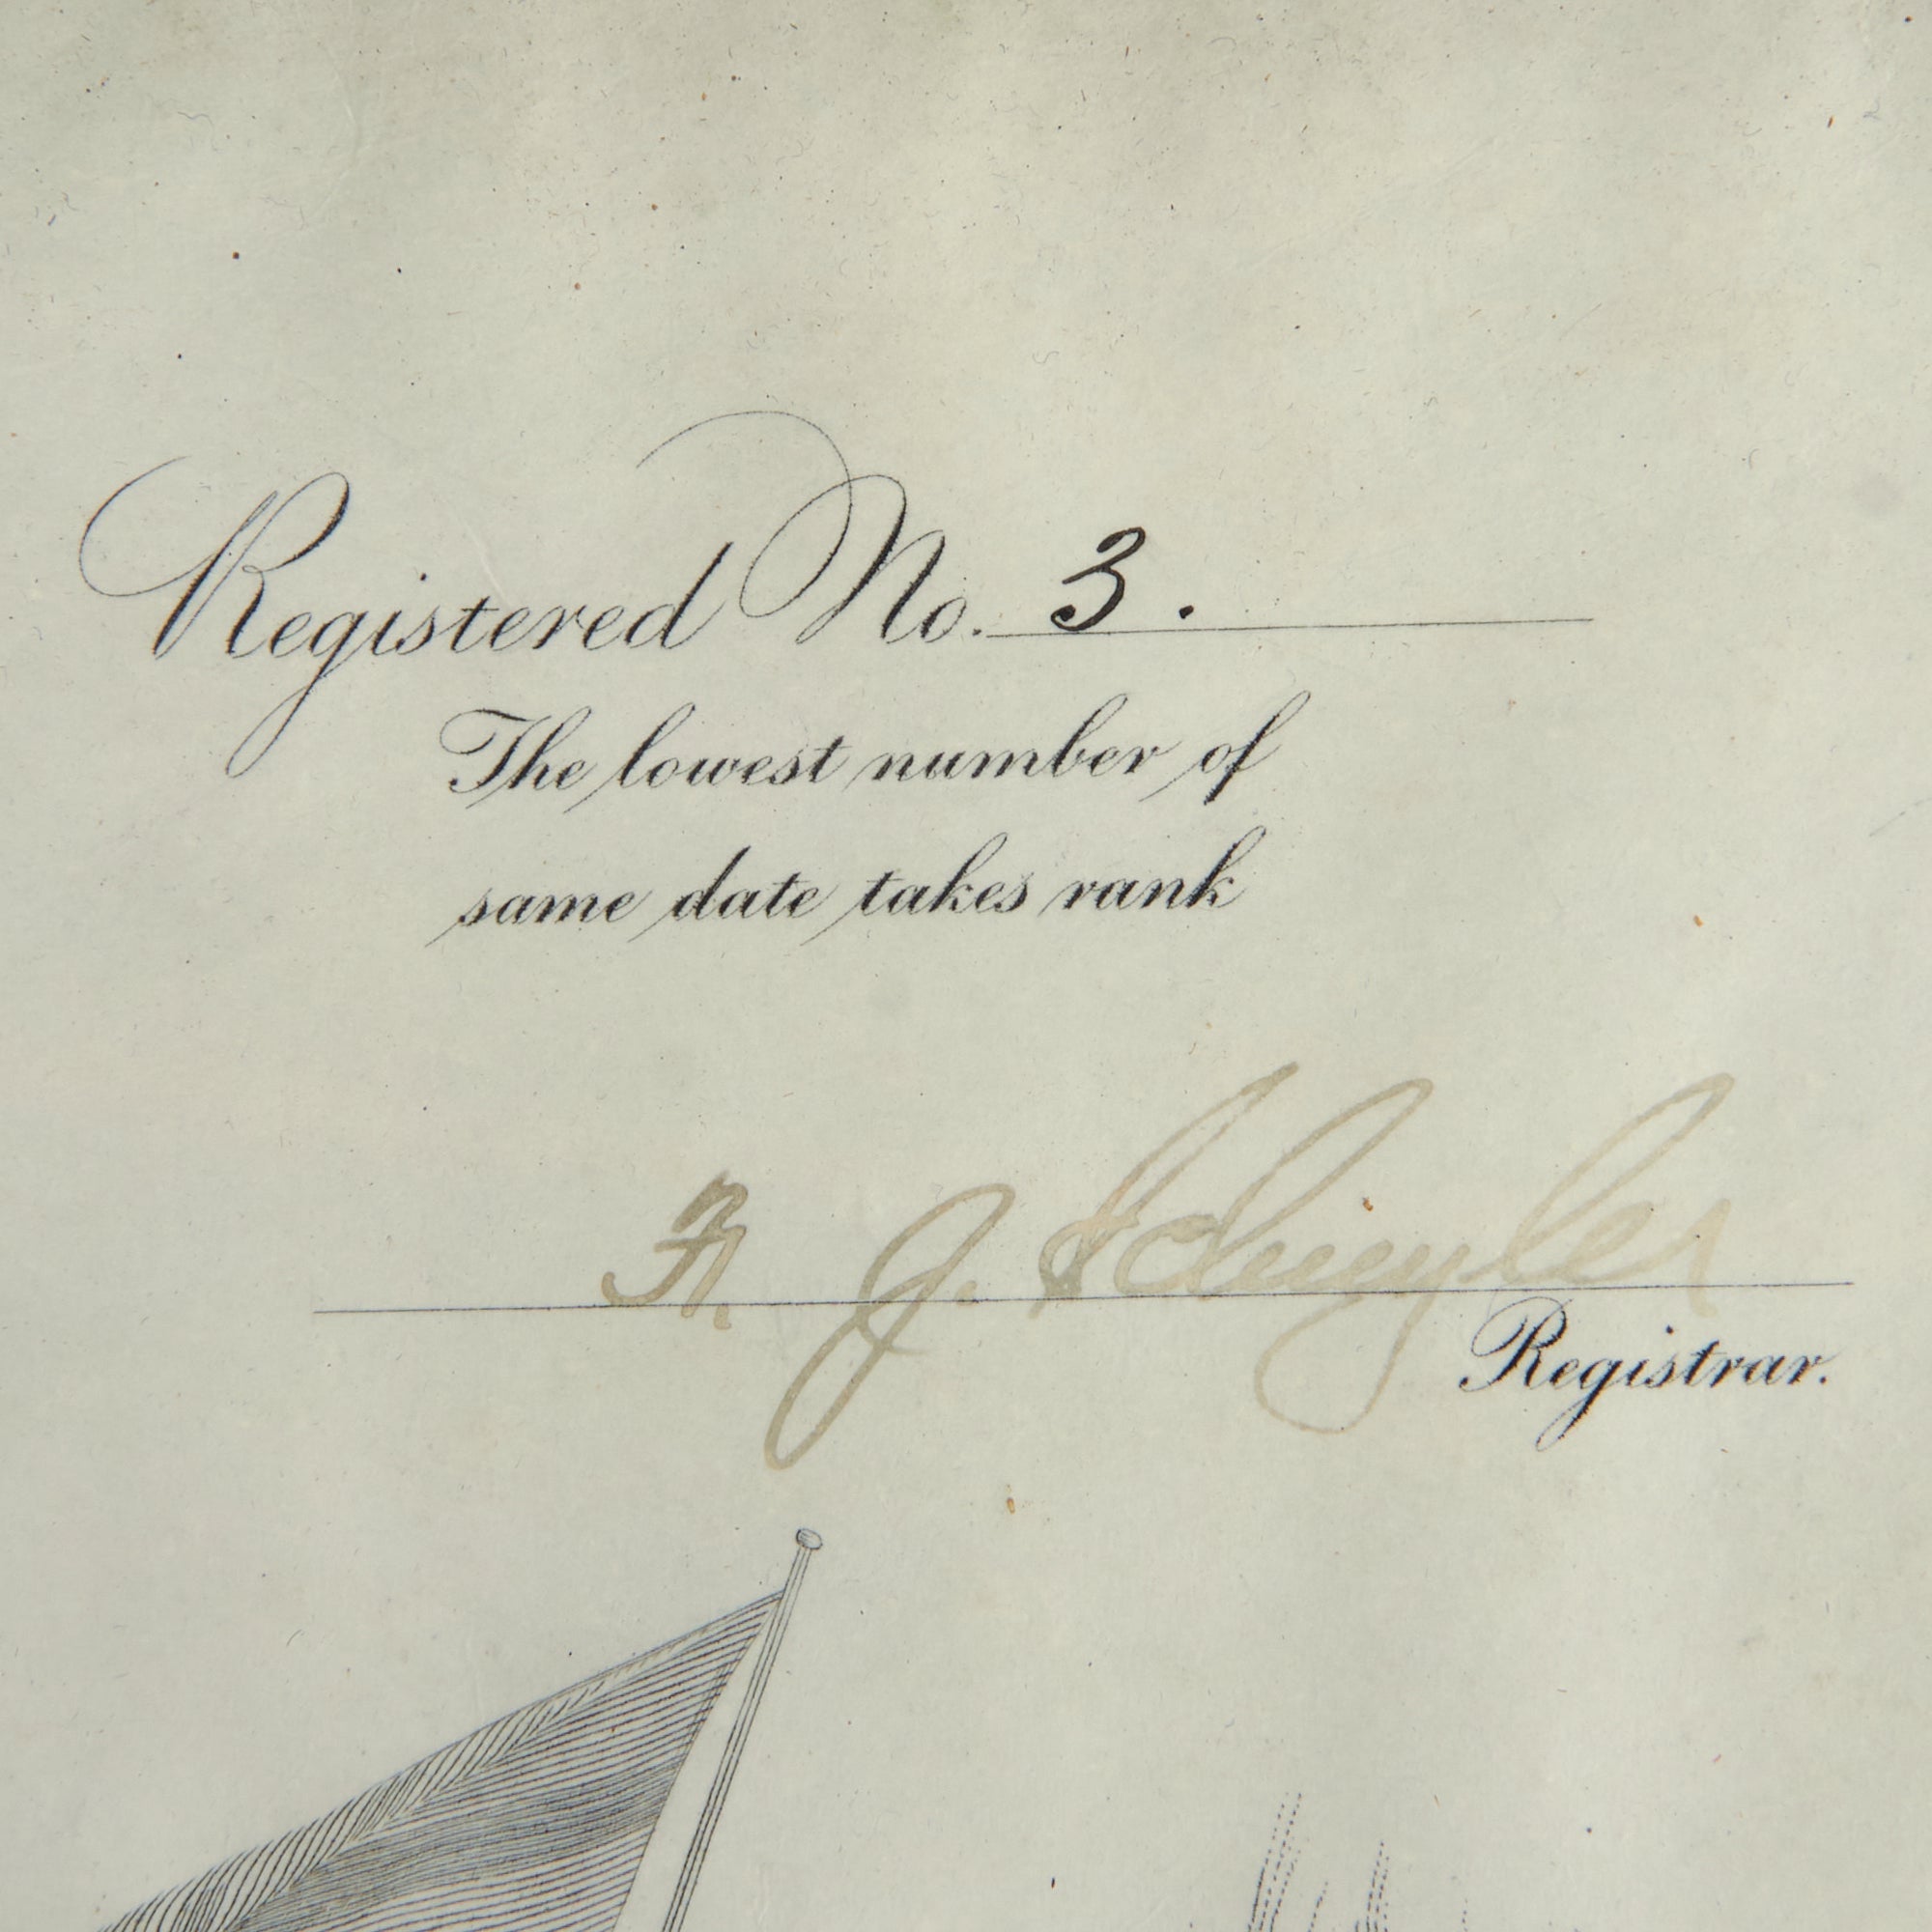 Registered No. 3.
The lowest number of
same date takes rank
J. Schuyler
Registrar.